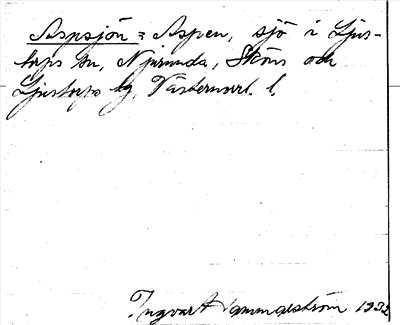 Aspsjön = Aspen, sjö i Ljus-
torps sn, Njurunda, Sköns och
Ljustorps tg, Västernorrl. l.
Ingvar Hammarström 1932